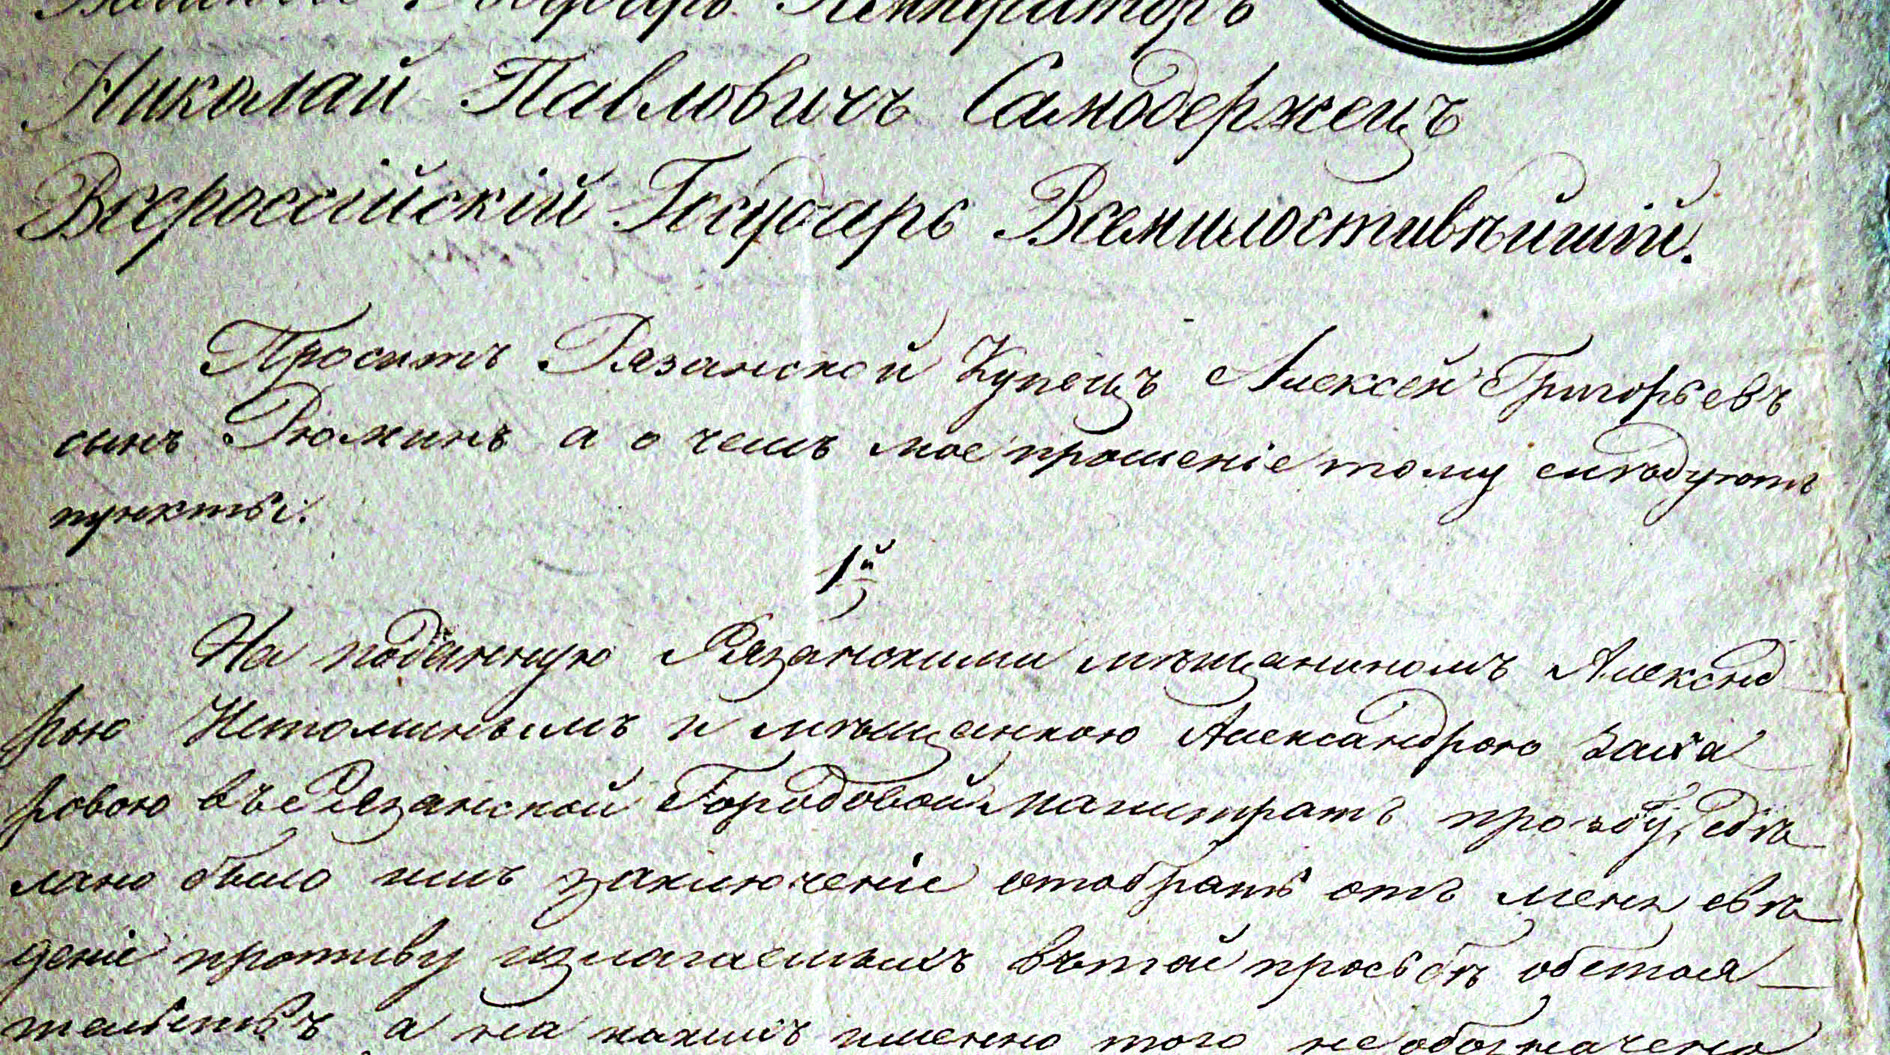 Великій Государь Императоръ
Николай Павловичъ Самодержецъ
Всероссійскій Государь Всемилостивѣйшій.
Проситъ Рязанской Купецъ Алексей Григорьевъ
сынъ Рюминъ а о чемъ мое прошеніе тому слѣдуютъ
пункты.
1й
На поданную Рязанскими мѣщаниномъ Александ
рью Истоминымъ и мѣщанкою Александрою Заха
ровою въ Рязанской Городовой Магистратъ прозьбу, сдѣ
лано было имъ заключеніе отобрать отъ меня свѣ
деніе противу излагаемыхъ въ той просьбѣ обстоя
тельствъ а на какихъ именно того не обозначено